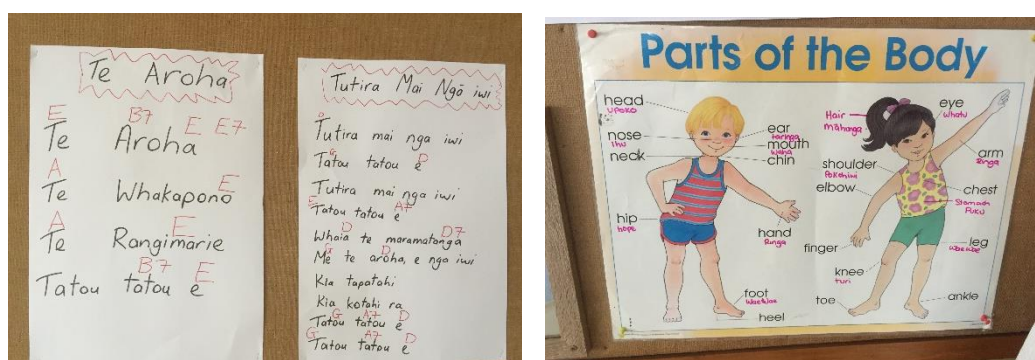 Te Aroha
E B7 E E7
Te Aroha
A E
Te Whakapono
A E
Te Rangimarie
B7 E
Tatou tatou e
Tutira Mai Ngō iwi
Tutira mai nga iwi
G D
Tatou tatou e
Tutira mai nga iwi
E A7
Tatou tatou e
D D7
Whaia te maramatanga
G D
Me te aroha, e nga iwi
Kia tapatahi
Kia kotahi ra
G A7 D
Tatou tatou e
G A7 D
Tatou tatou e
Parts of the Body
head
upoko
nose
ihu
neck
ear
taringa
mouth
waha
chin
hip
hope
hand
Ringa
foot
waewae
heel
Hair
māhanga
eye
whatu
arm
Ringa
shoulder
Pokohiwi
elbow
chest
Stomach
Puku
finger
leg
waewae
knee
turi
toe
ankle